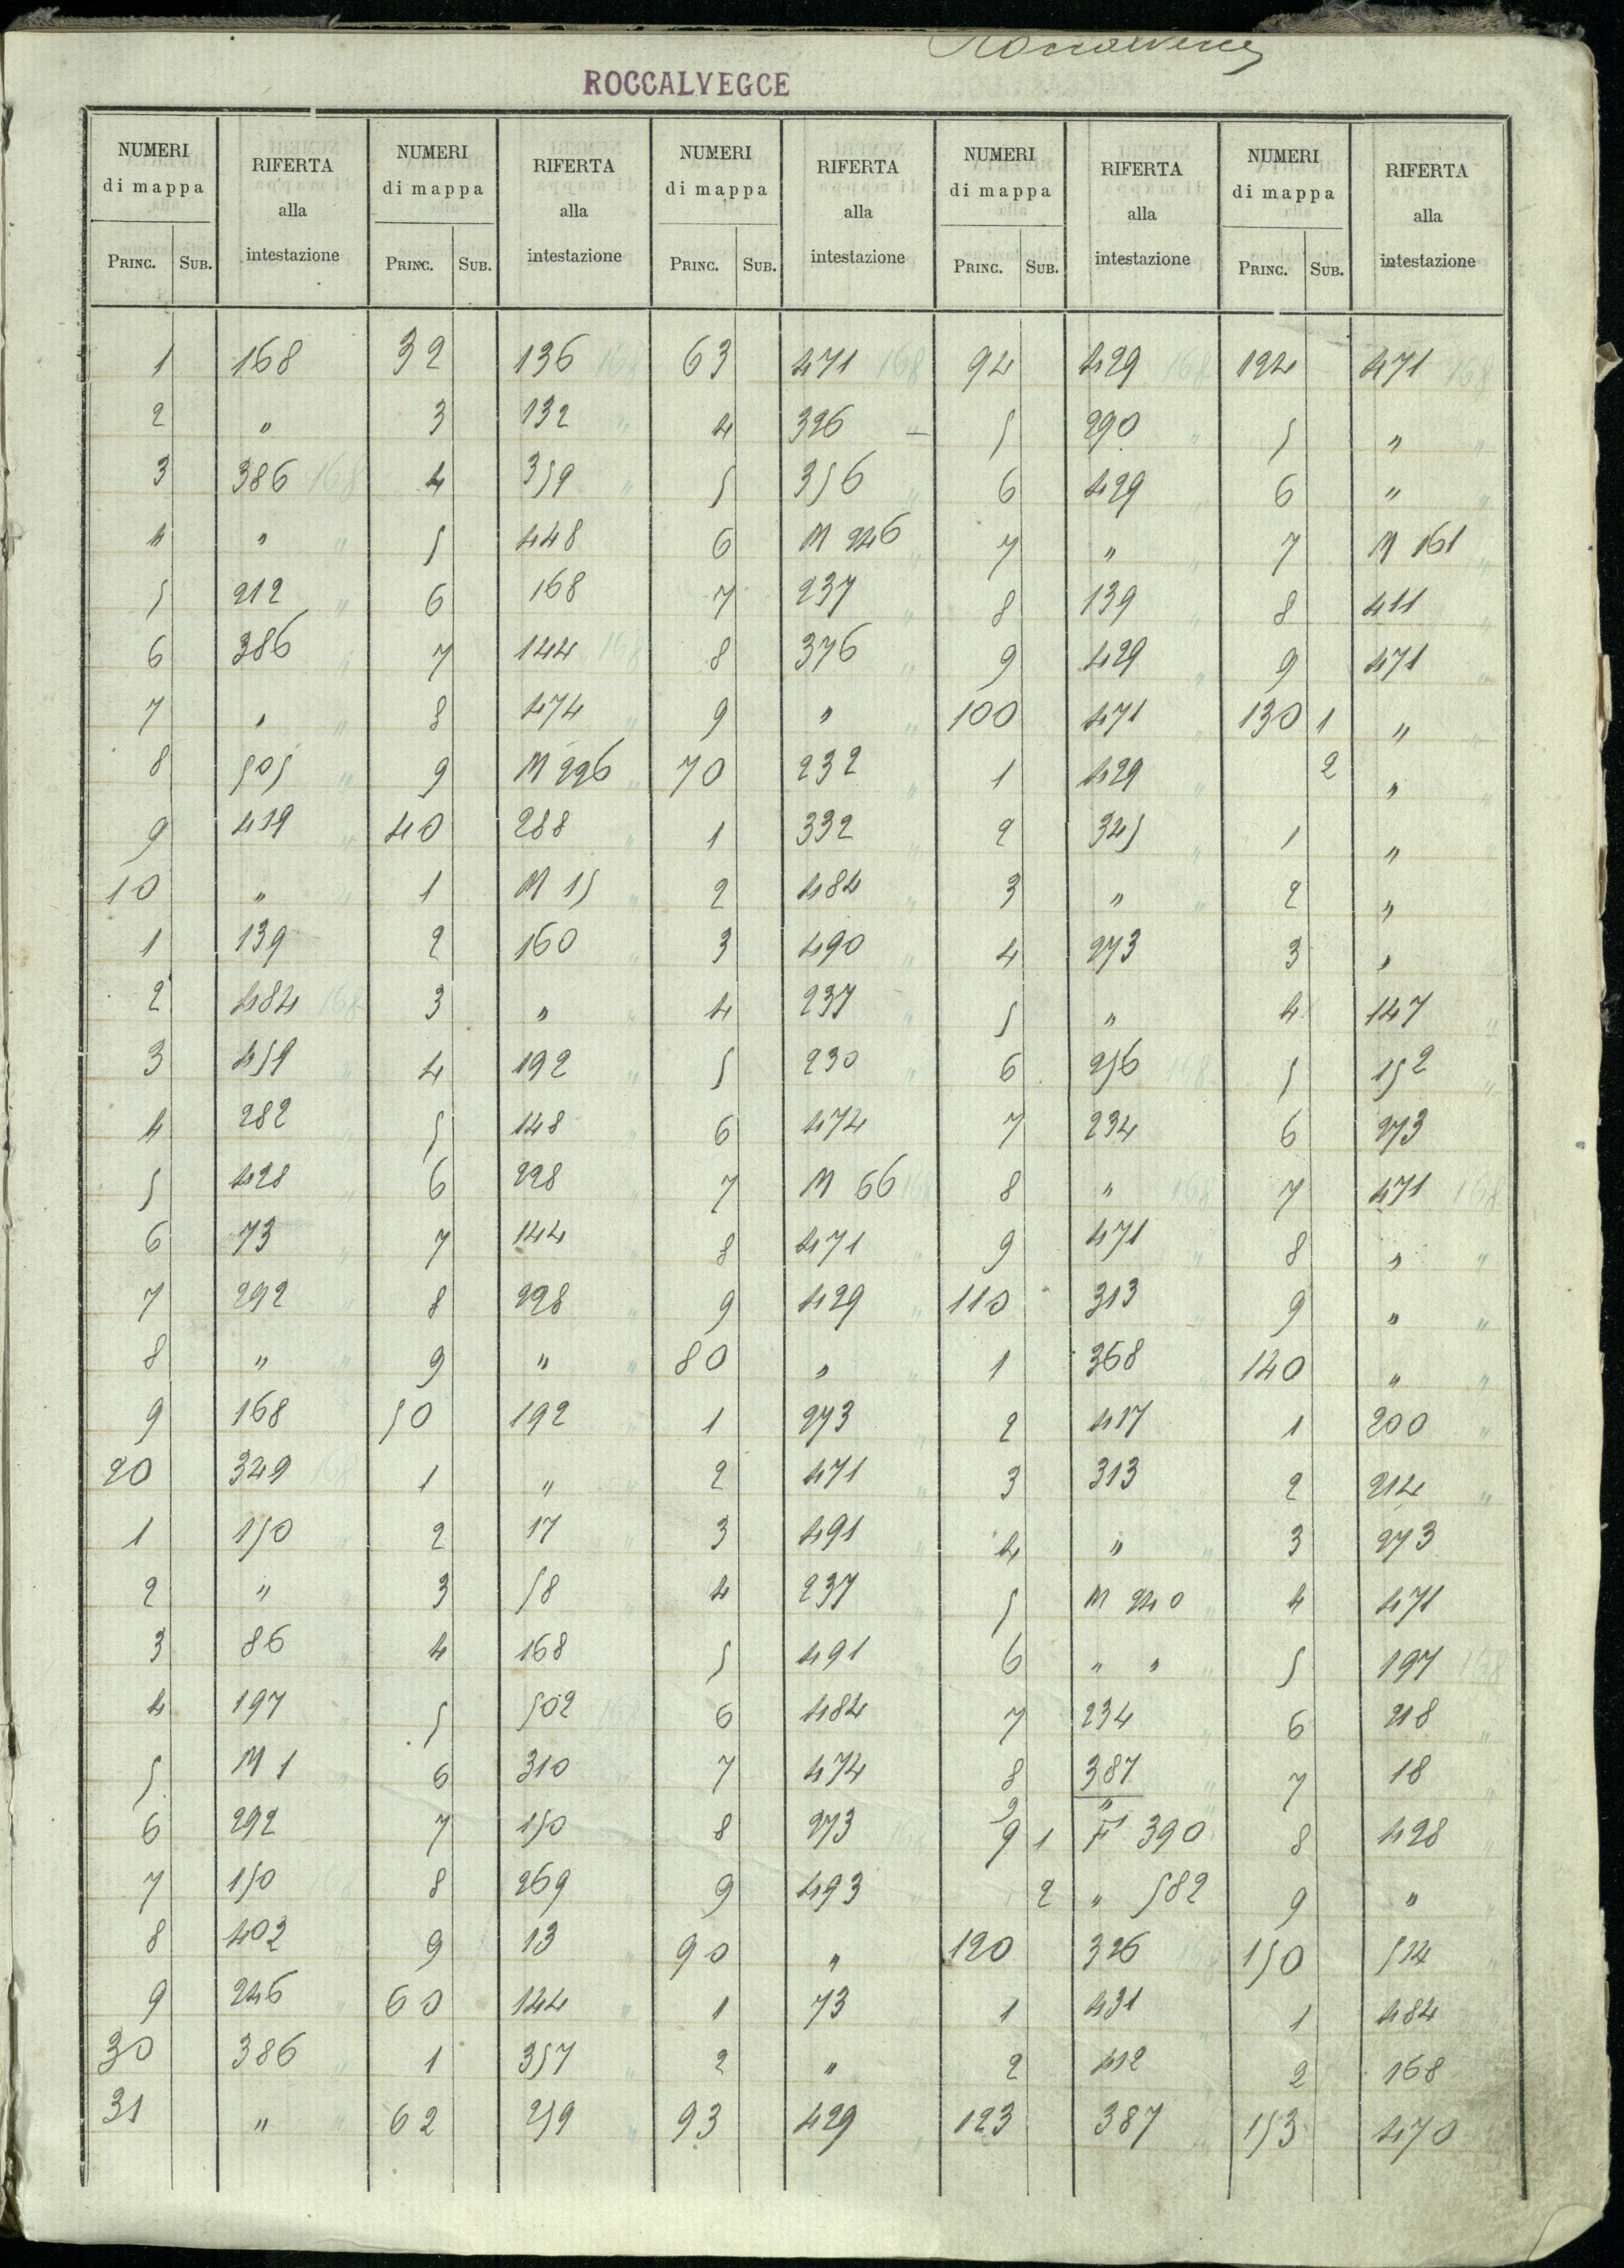 ROCCALVEGCE
NUMERI di mappa RIFERTA alla intestazione NUMERI di mappa RIFERTA alla intestazione NUMERI di mappa RIFERTA alla intestazione NUMERI di mappa RIFERTA alla intestazione NUMERI di mappa RIFERTA alla intestazione
PRINC. SUB. PRINC. SUB. PRINC. SUB. PRINC. SUB. PRINC. SUB.
1 168 32 136 168 63 471 168 94 429 168 124 471 168
2 " 3 132 " 4 326 " 5 290 " 5 " "
3 386 168 4 359 " 5 356 " 6 429 " 6 " "
4 " " 5 448 6 M 246 " 7 " " 7 M 161 "
5 212 " 6 168 7 237 " 8 139 " 8 411 "
6 386 " 7 144 168 8 376 " 9 429 " 9 471 "
7 " " 8 474 " 9 " " 100 471 " 130 1 " "
8 505 " 9 M 226 " 70 232 " 1 429 " 2 " "
9 419 " 40 288 " 1 332 " 2 345 " 1 "
10 " " 1 M 15 " 2 484 " 3 " " 2 "
1 139 2 160 " 3 490 " 4 273 3 "
2 484 168 3 " " 4 237 " 5 " 4 147 "
3 459 " 4 192 " 5 230 " 6 256 168 5 152 "
4 282 " 5 148 " 6 474 7 234 6 273
5 428 " 6 228 " 7 M 66 168 8 " 168 7 471 168
6 73 " 7 144 " 8 471 " 9 471 " 8 " "
7 292 " 8 228 " 9 429 " 110 313 " 9 " "
8 " " 9 " " 80 " " 1 368 " 140 " "
9 168 50 192 " 1 273 " 2 417 " 1 200 "
20 349 168 1 " " 2 471 " 3 313 2 214 "
1 150 " 2 17 " 3 491 " 4 " " 3 273
2 " " 3 58 " 4 237 5 M 240 " 4 471
3 86 " 4 168 5 491 " 6 " " " 5 197 168
4 197 " 5 502 168 6 484 " 7 234 " 6 218 "
5 M 1 " 6 310 7 474 8 387 " 7 18 "
9 "
6 292 " 7 150 8 273 168 9 1 F 390 8 428 "
7 150 168 8 269 " 9 493 " 2 " 582 9 " "
8 402 " 9 13 " 90 " " 120 326 168 150 514 "
9 246 " 60 144 " 1 73 1 431 1 484 "
30 386 " 1 357 " 2 " 2 412 2 168
31 " " 62 259 " 93 429 " 123 387 153 470